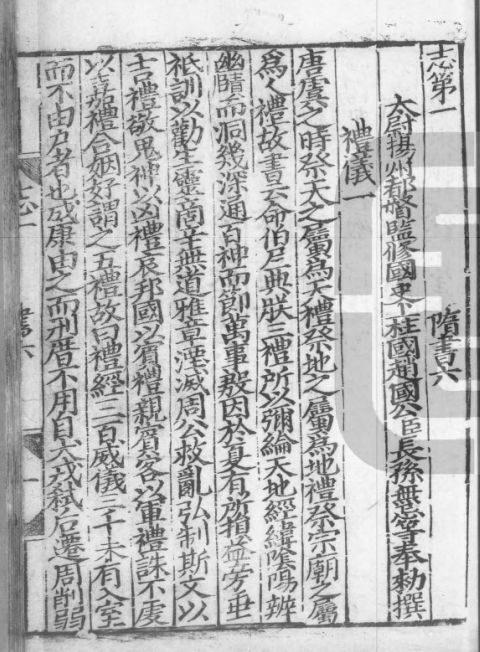 志第一 隋書六
太尉揚州都督監修國史上柱國趙國公臣長孫無忌等奉勑撰
禮儀一
唐虞之時祭天之屬爲天禮祭地之屬爲地禮祭宗廟之屬
爲人禮故書云命伯夷典朕三禮所以彌綸天地經緯陰陽辨
幽賾而洞幾深通百神而節萬事殷因於夏有所損益旁垂
祗訓以勸生靈商辛無道雅章湮滅周公救亂弘制斯文以
吉禮敬鬼神以凶禮哀邦國以賓禮親賓客以軍禮誅不虔
以嘉禮合姻好謂之五禮故曰禮經三百威儀三千未有入室
而不由户者也成康由之而刑厝不用自犬戎弑后遷周削弱